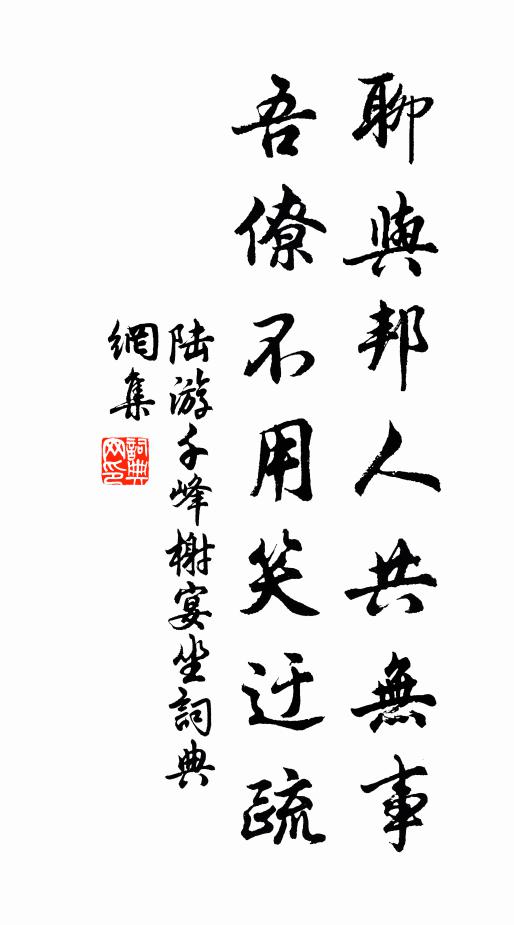 聊與邦人共無事
吾僚不用笑迂疏
陸游千峰榭宴坐詞典
網集
詞典網印